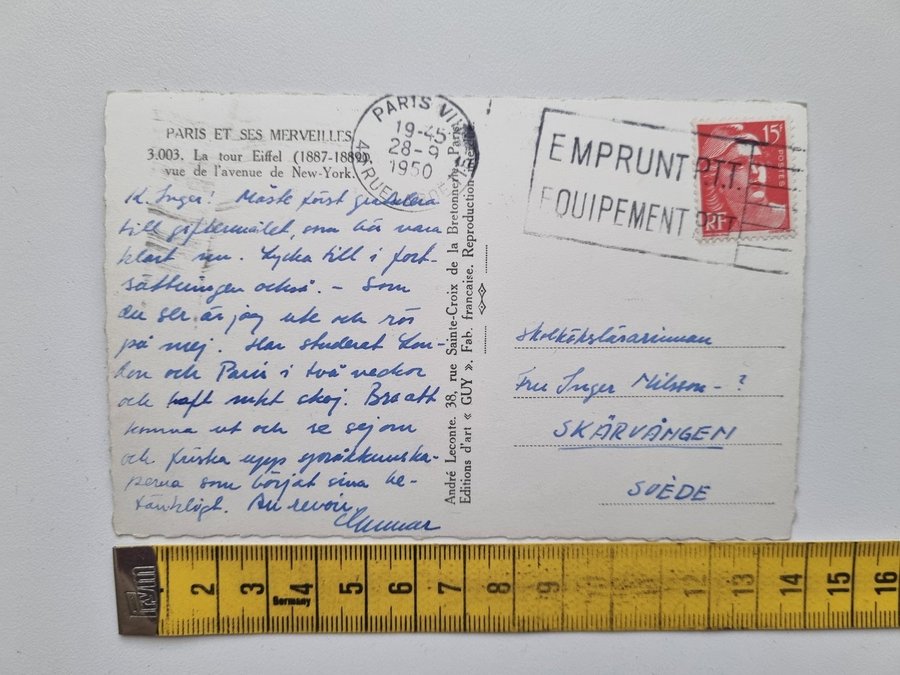 PARIS ET SES MERVEILLES
3.003. La tour Eiffel (1887-1889),
vue de l'avenue de New-York.
K. Inger! Måste först gratulera
till giftermålet, som bör vara
klart nu. Lycka till i fort-
sättningen också. - Som
du ser är jag ute och rör
på mej. Har studerat Lon-
don och Paris i två veckor
och haft mkt skoj. Bra att
komma ut och se sej om
och friska upp språkkunska-
perna som börjat sina be-
tänkligt. Au revoir
Gunnar
André Leconte. 38, rue Sainte-Croix de la Bretonnerie, Paris
Editions d'art « GUY ». Fab. française. Reproduction
PARIS VII
19-45
28-9
1950
RUE
EMPRUNT P.T.T.
EQUIPEMENT
15F
POSTES
RF
Skolkökslärarinnan
Fru Inger Nilsson - ?
SKÄRVÅNGEN
SUÈDE
2 3 4 5 6 7 8 9 10 11 12 13 14 15 16
Germany